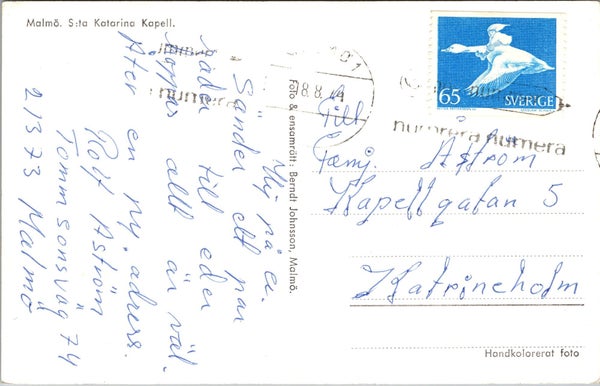 Malmö. S:ta Katarina Kapell.
Hej på er.
Sänder ett par
rader till eder
hoppas allt är väl.
Åter en ny adress.
Rolf Åström
Tomm sonsväg 74
213 73 Malmö
Foto & ensamrätt: Berndt Johnsson, Malmö.
18.8.74
numrera
65 SVERIGE
numrera
Till
Famj. Åström
Kapellgatan 5
Katrineholm
Handkolorerat foto